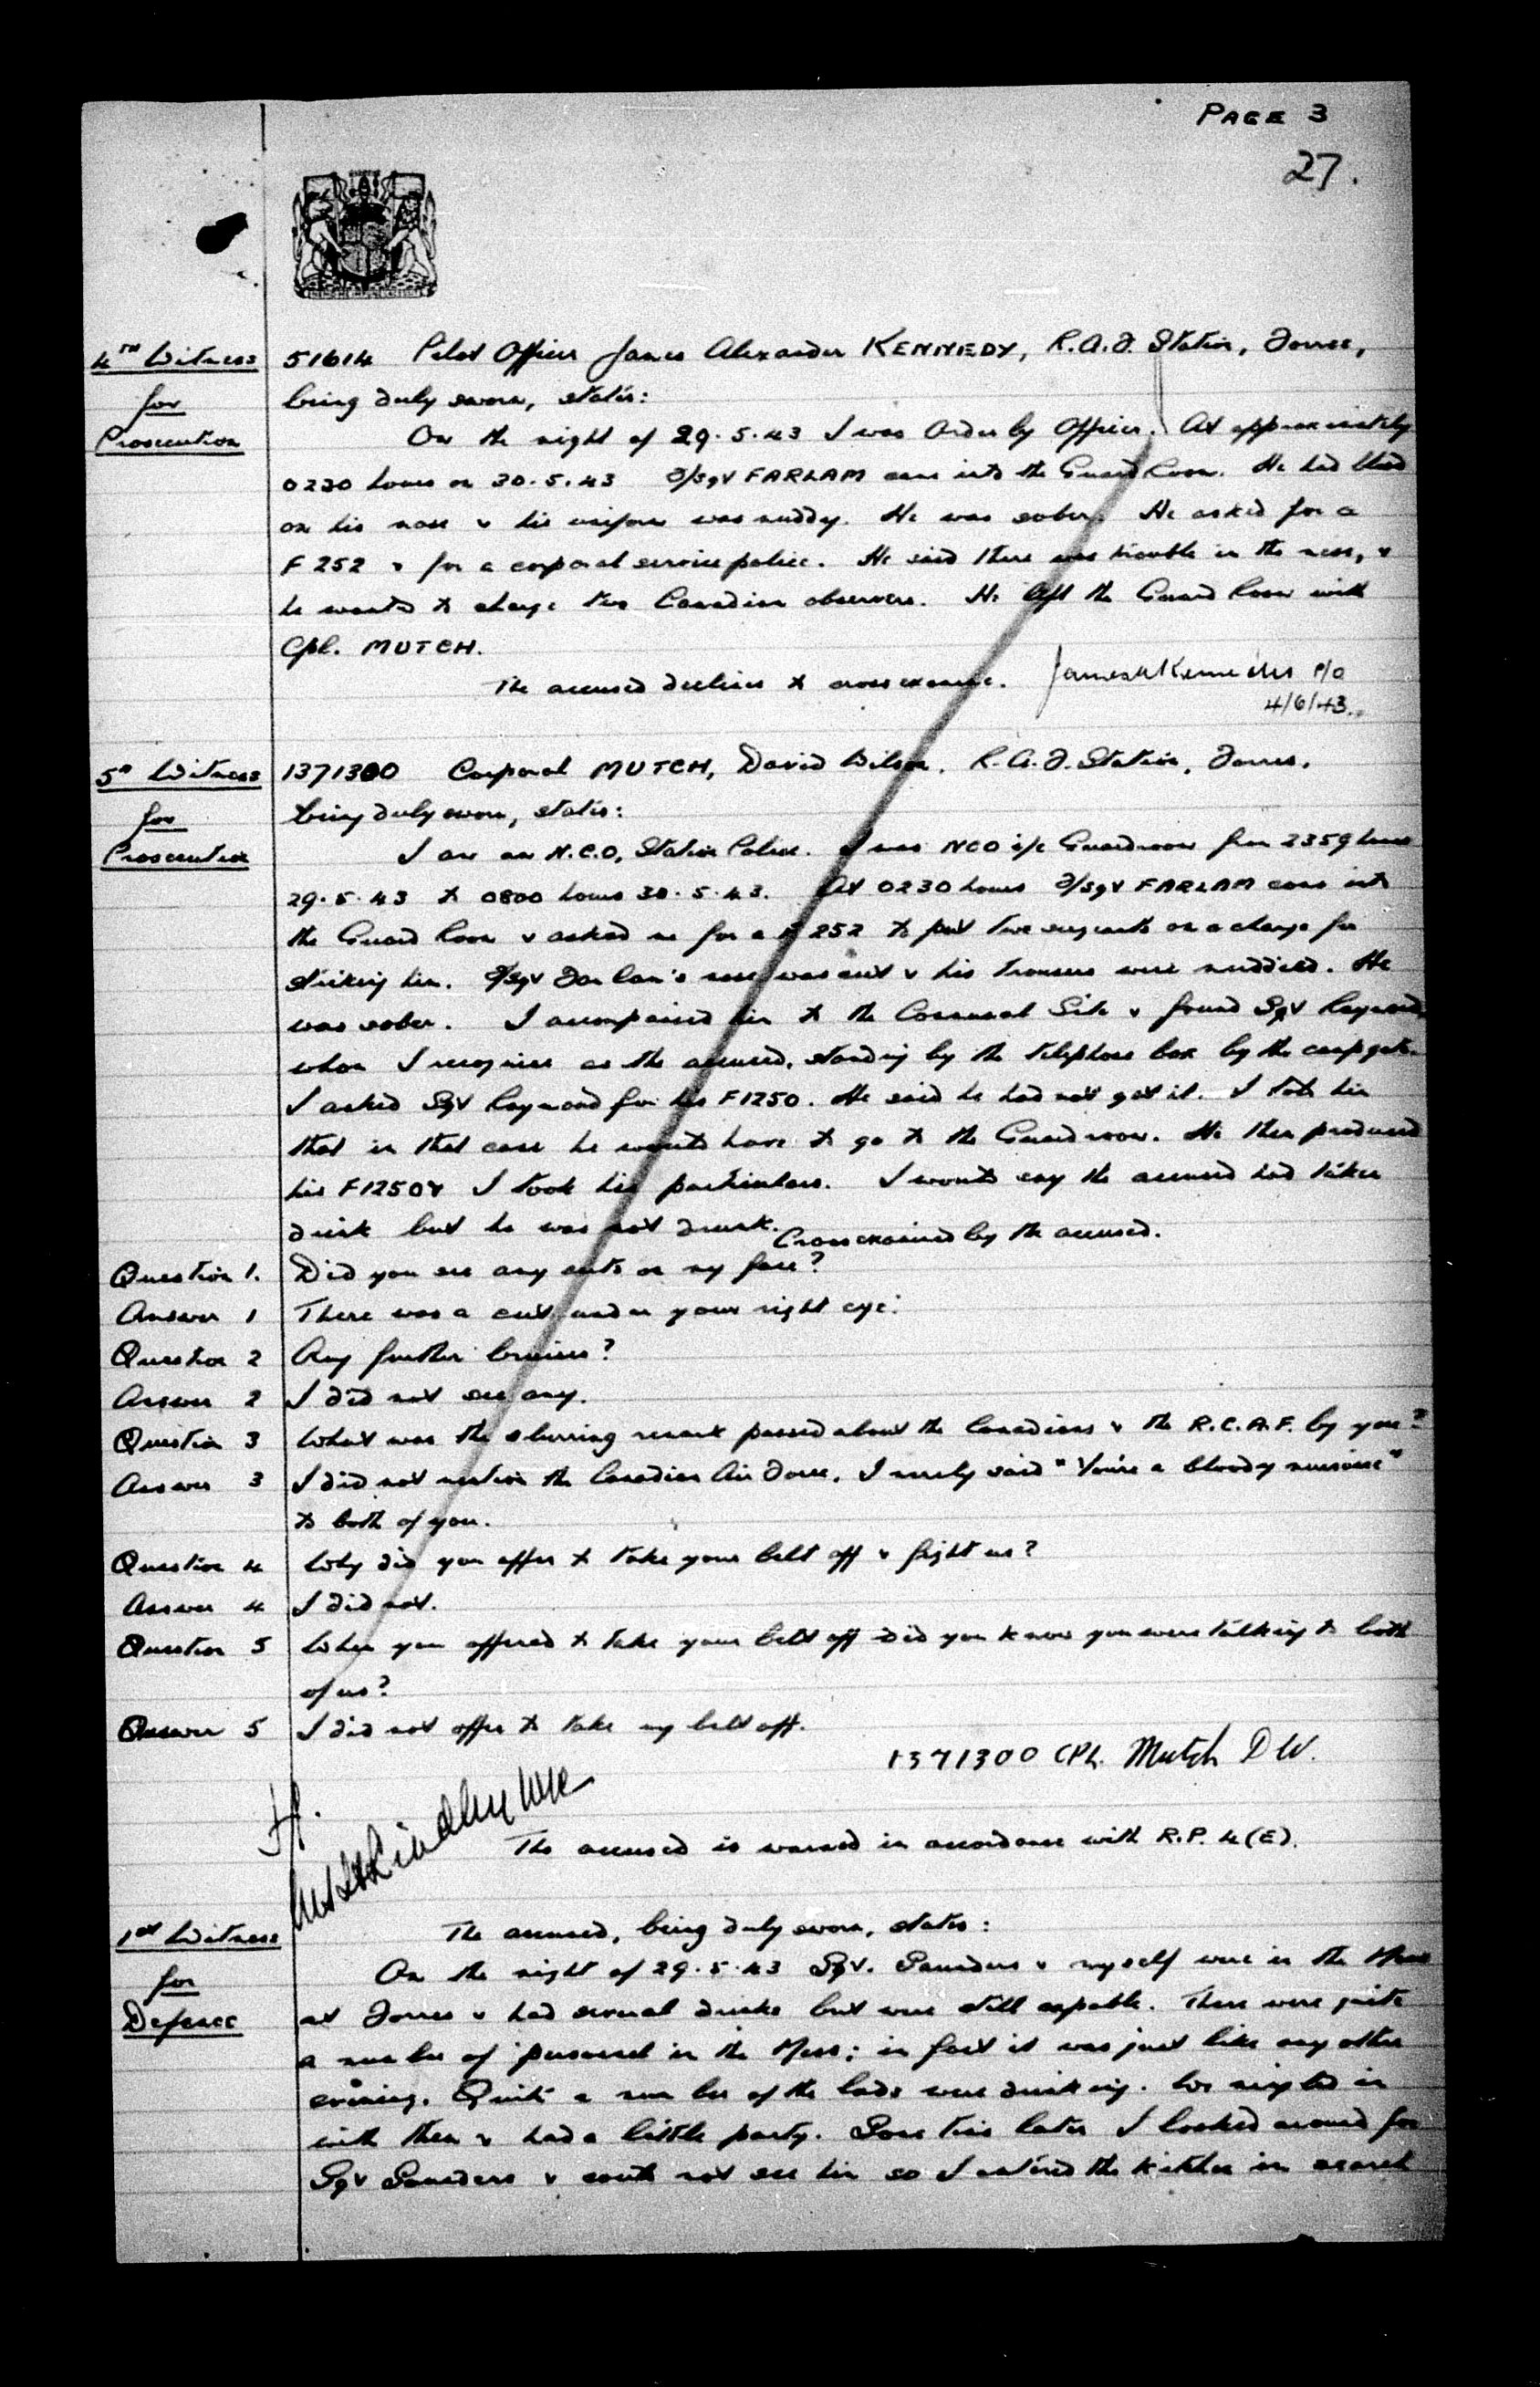 PAGE 3
27.
4TH Witness 51614 Pilot Officer James Alexander KENNEDY, R.A.F. Station, Forres,
for being duly sworn, states:
Prosecution On the night of 29.5.43 I was Orderly Officer. At approximately
0230 hours on 30.5.43 F/Sgt FARLAM came into the Guard Room. He had blood
on his nose & his uniform was muddy. He was sober. He asked for a
F 252 & for a corporal service police. He said there was trouble in the mess, &
he wanted to charge two Canadian observers. He left the Guard Room with
Cpl. MUTCH.
The accused declines to cross examine. James A Kennedy P/O
4/6/43.
5th Witness 1371300 Corporal MUTCH, David Wilson, R.A.F. Station, Forres.
for being duly sworn, states:
Prosecution I am an N.C.O, Station Police. I was NCO i/c Guardroom from 2359 hours
29.5.43 to 0800 hours 30.5.43. At 0230 hours F/Sgt FARLAM came into
the Guard Room & asked me for a F 252 to put two sergeants on a charge for
striking him. F/Sgt Farlam's nose was cut & his trousers were muddied. He
was sober. I accompanied him to the Communal Site & found Sgt Raymond,
whom I recognise as the accused, standing by the telephone box by the camp gate.
I asked Sgt Raymond for his F1250. He said he had not got it. I told him
that in that case he would have to go to the Guardroom. He then produced
his F1250 & I took his particulars. I would say the accused had taken
drink but he was not drunk. Cross examined by the accused.
Question 1. Did you see any cuts on my face?
Answer 1 There was a cut under your right eye.
Question 2 Any further bruises?
Answer 2 I did not see any.
Question 3 What was the slurring remark passed about the Canadians & the R.C.A.F. by you?
Answer 3 I did not mention the Canadian Air Force, I merely said "You're a bloody nuisance"
to both of you.
Question 4 Why did you offer to take your belt off & fight us?
Answer 4 I did not.
Question 5 When you offered to take your belt off did you know you were talking to both
of us?
Answer 5 I did not offer to take my belt off.
1371300 CPL. Mutch D W.
The accused is warned in accordance with R.P. 4 (E).
1st Witness The accused, being duly sworn, states:
for On the night of 29.5.43 Sgt. Saunders & myself were in the Mess
Defence at Forres & had several drinks but were still capable. There were quite
a number of personnel in the Mess; in fact it was just like any other
evening. Quite a number of the lads were drinking. We mixed in
with them & had a little party. Some time later I looked around for
Sgt Saunders & could not see him so I entered the kitchen in search